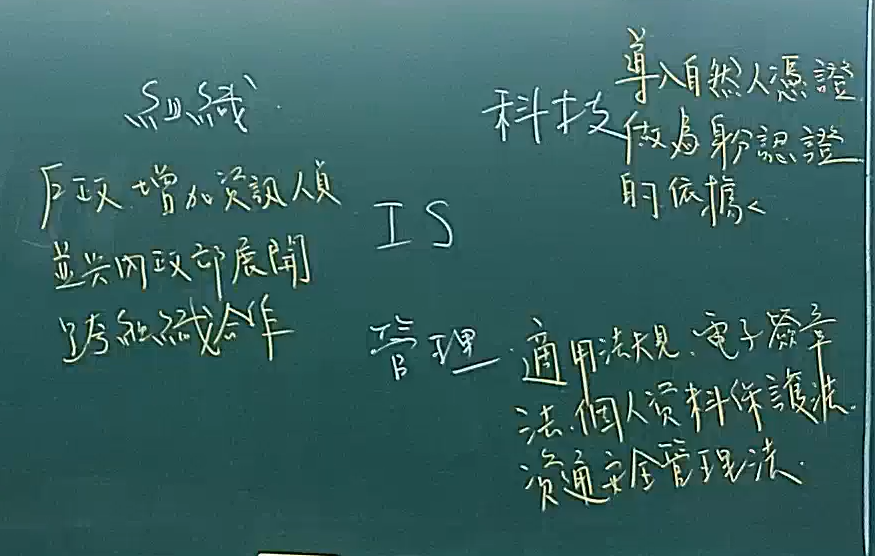 組織
戶政增加資訊人員
並與內政部展開
跨組織合作
IS
科技
導入自然人憑證
做為身分認證
的依據
管理
適用法規、電子簽章
法、個人資料保護法、
資通安全管理法。